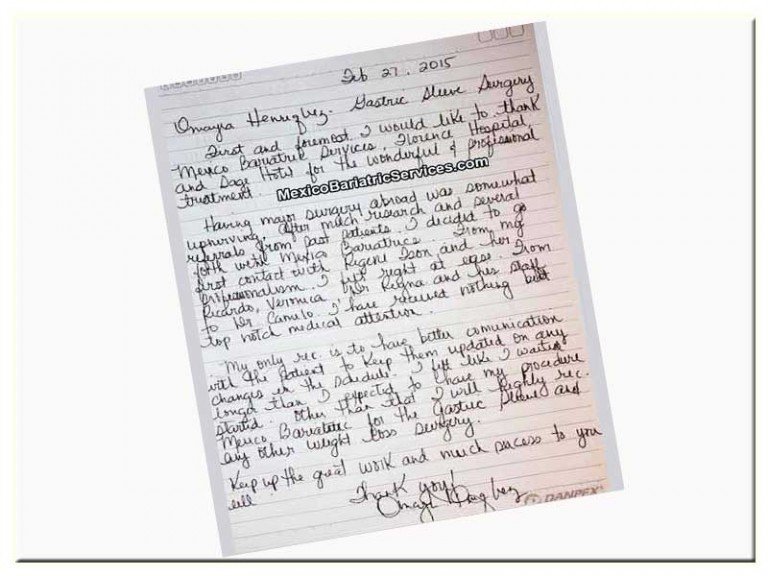 Feb 27, 2015
Omayra Henriquez - Gastric Sleeve Surgery
First and foremost I would like to thank
Mexico Bariatric Services, Florence Hospital,
and Sage Hotel for the wonderful & professional
treatment.
MexicoBariatricServices.com
Having major surgery abroad was somewhat
unnerving. After much research and several
referrals from past patients, I decided to go
forth with Mexico Bariatrics. From my
first contact with Ison and her
professionalism I felt right at ease. From
Ricardo, Veronica, and his staff
to Dr Camilo I have received nothing but
top notch medical attention.
My only rec. is to have better comunication
with the patient to keep them updated on any
changes in the schedule. I felt like I waited
longer than I expected to have my procedure
started. Other than that I will highly rec.
Mexico Bariatric for the Gastric Sleeve and
any other weight loss surgery.
Keep up the great work and much success to you
all.
Thank you!
DANPEX